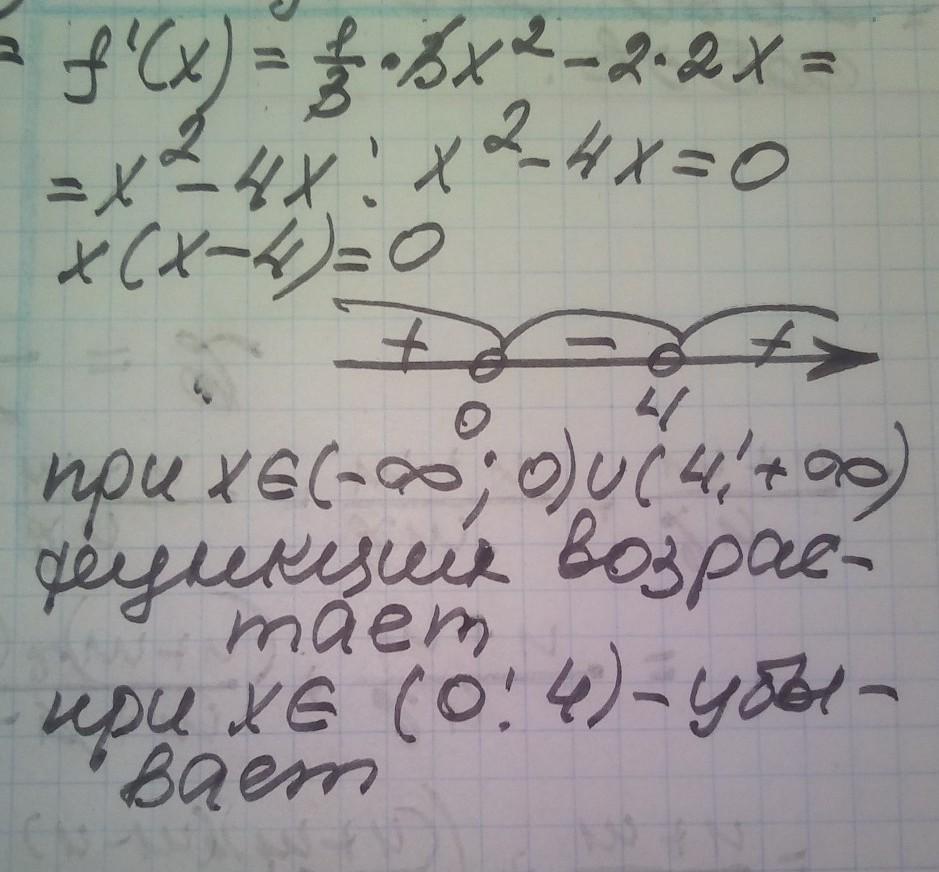 = f'(x) = 1/3 · 3x² - 2·2x =
= x² - 4x ; x² - 4x = 0
x(x-4) = 0
+ - +
0 4
при x∈(-∞; 0)∪(4;+∞)
функция возрас-
тает
при x∈ (0; 4) - убы-
вает